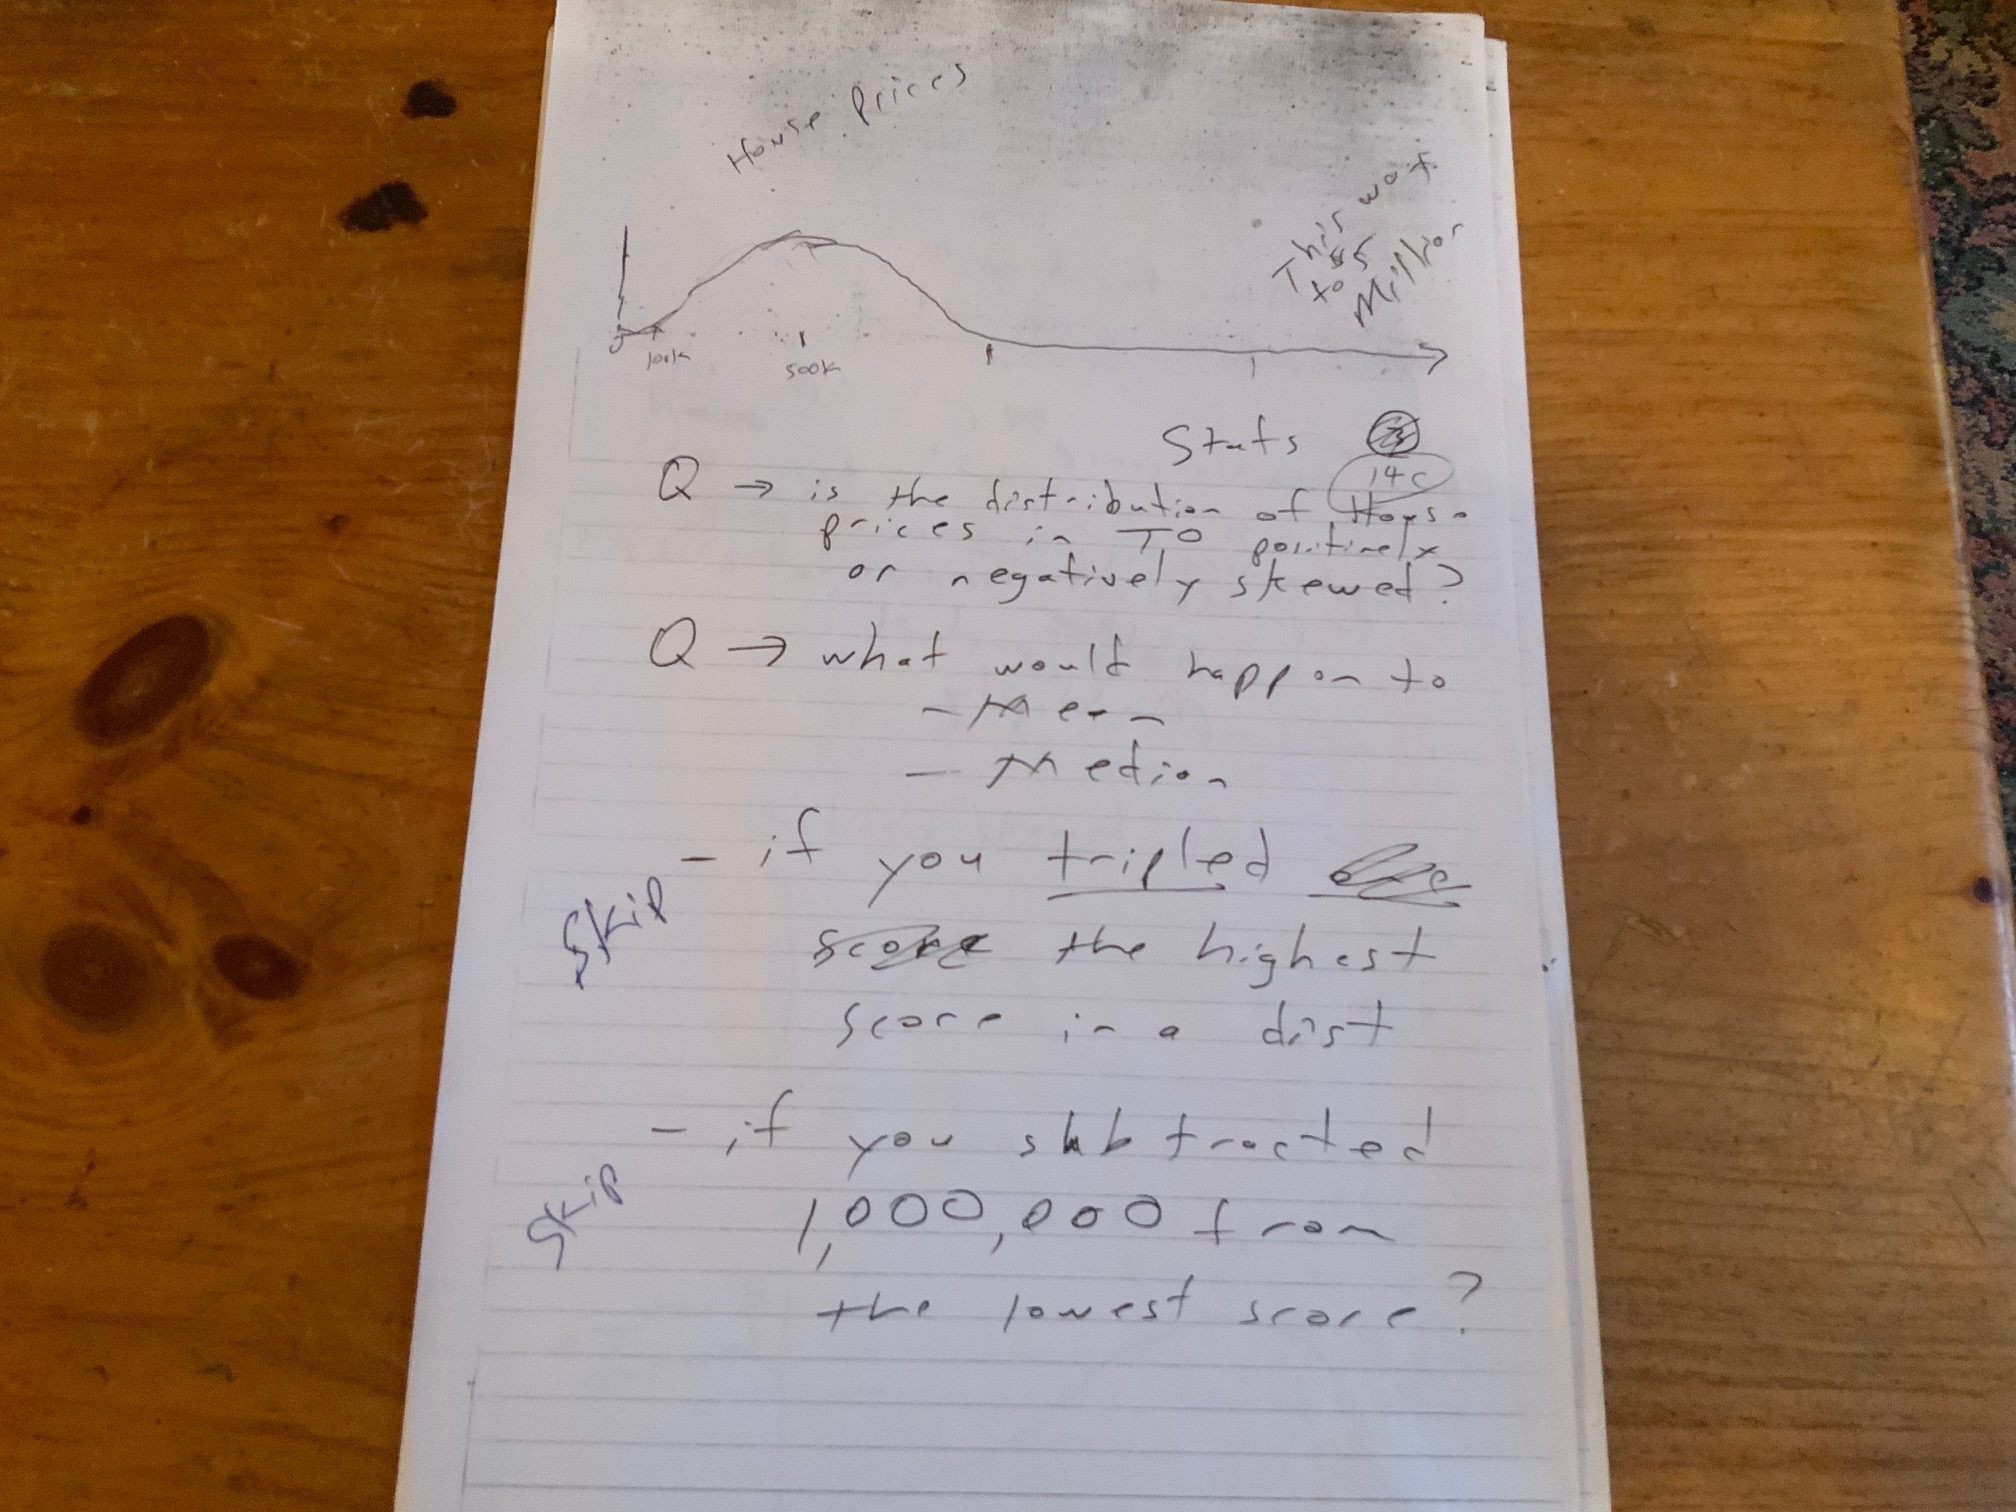 House Prices
This way
to $5
Million
0
100k
500k
Stats
14c
Q → is the distribution of House
prices in TO positively
or negatively skewed?
Q → what would happen to
- Mean
- Median
- if you tripled
Skip
score the highest
score in a dist
- if you subtracted
Skip
1,000,000 from
the lowest score?